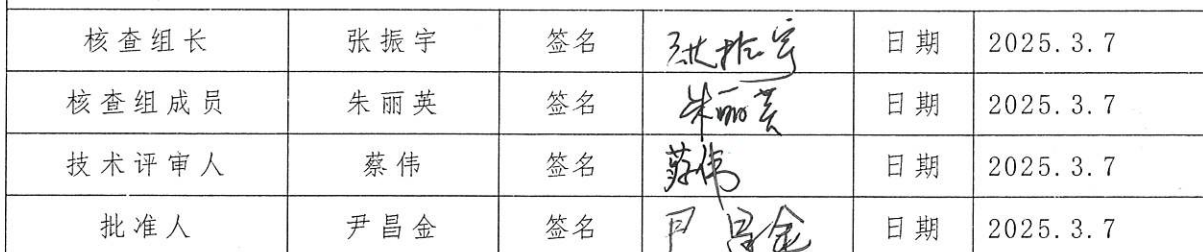 核查组长 张振宇 签名 张振宇 日期 2025.3.7
核查组成员 朱丽英 签名 朱丽英 日期 2025.3.7
技术评审人 蔡伟 签名 蔡伟 日期 2025.3.7
批准人 尹昌金 签名 尹昌金 日期 2025.3.7